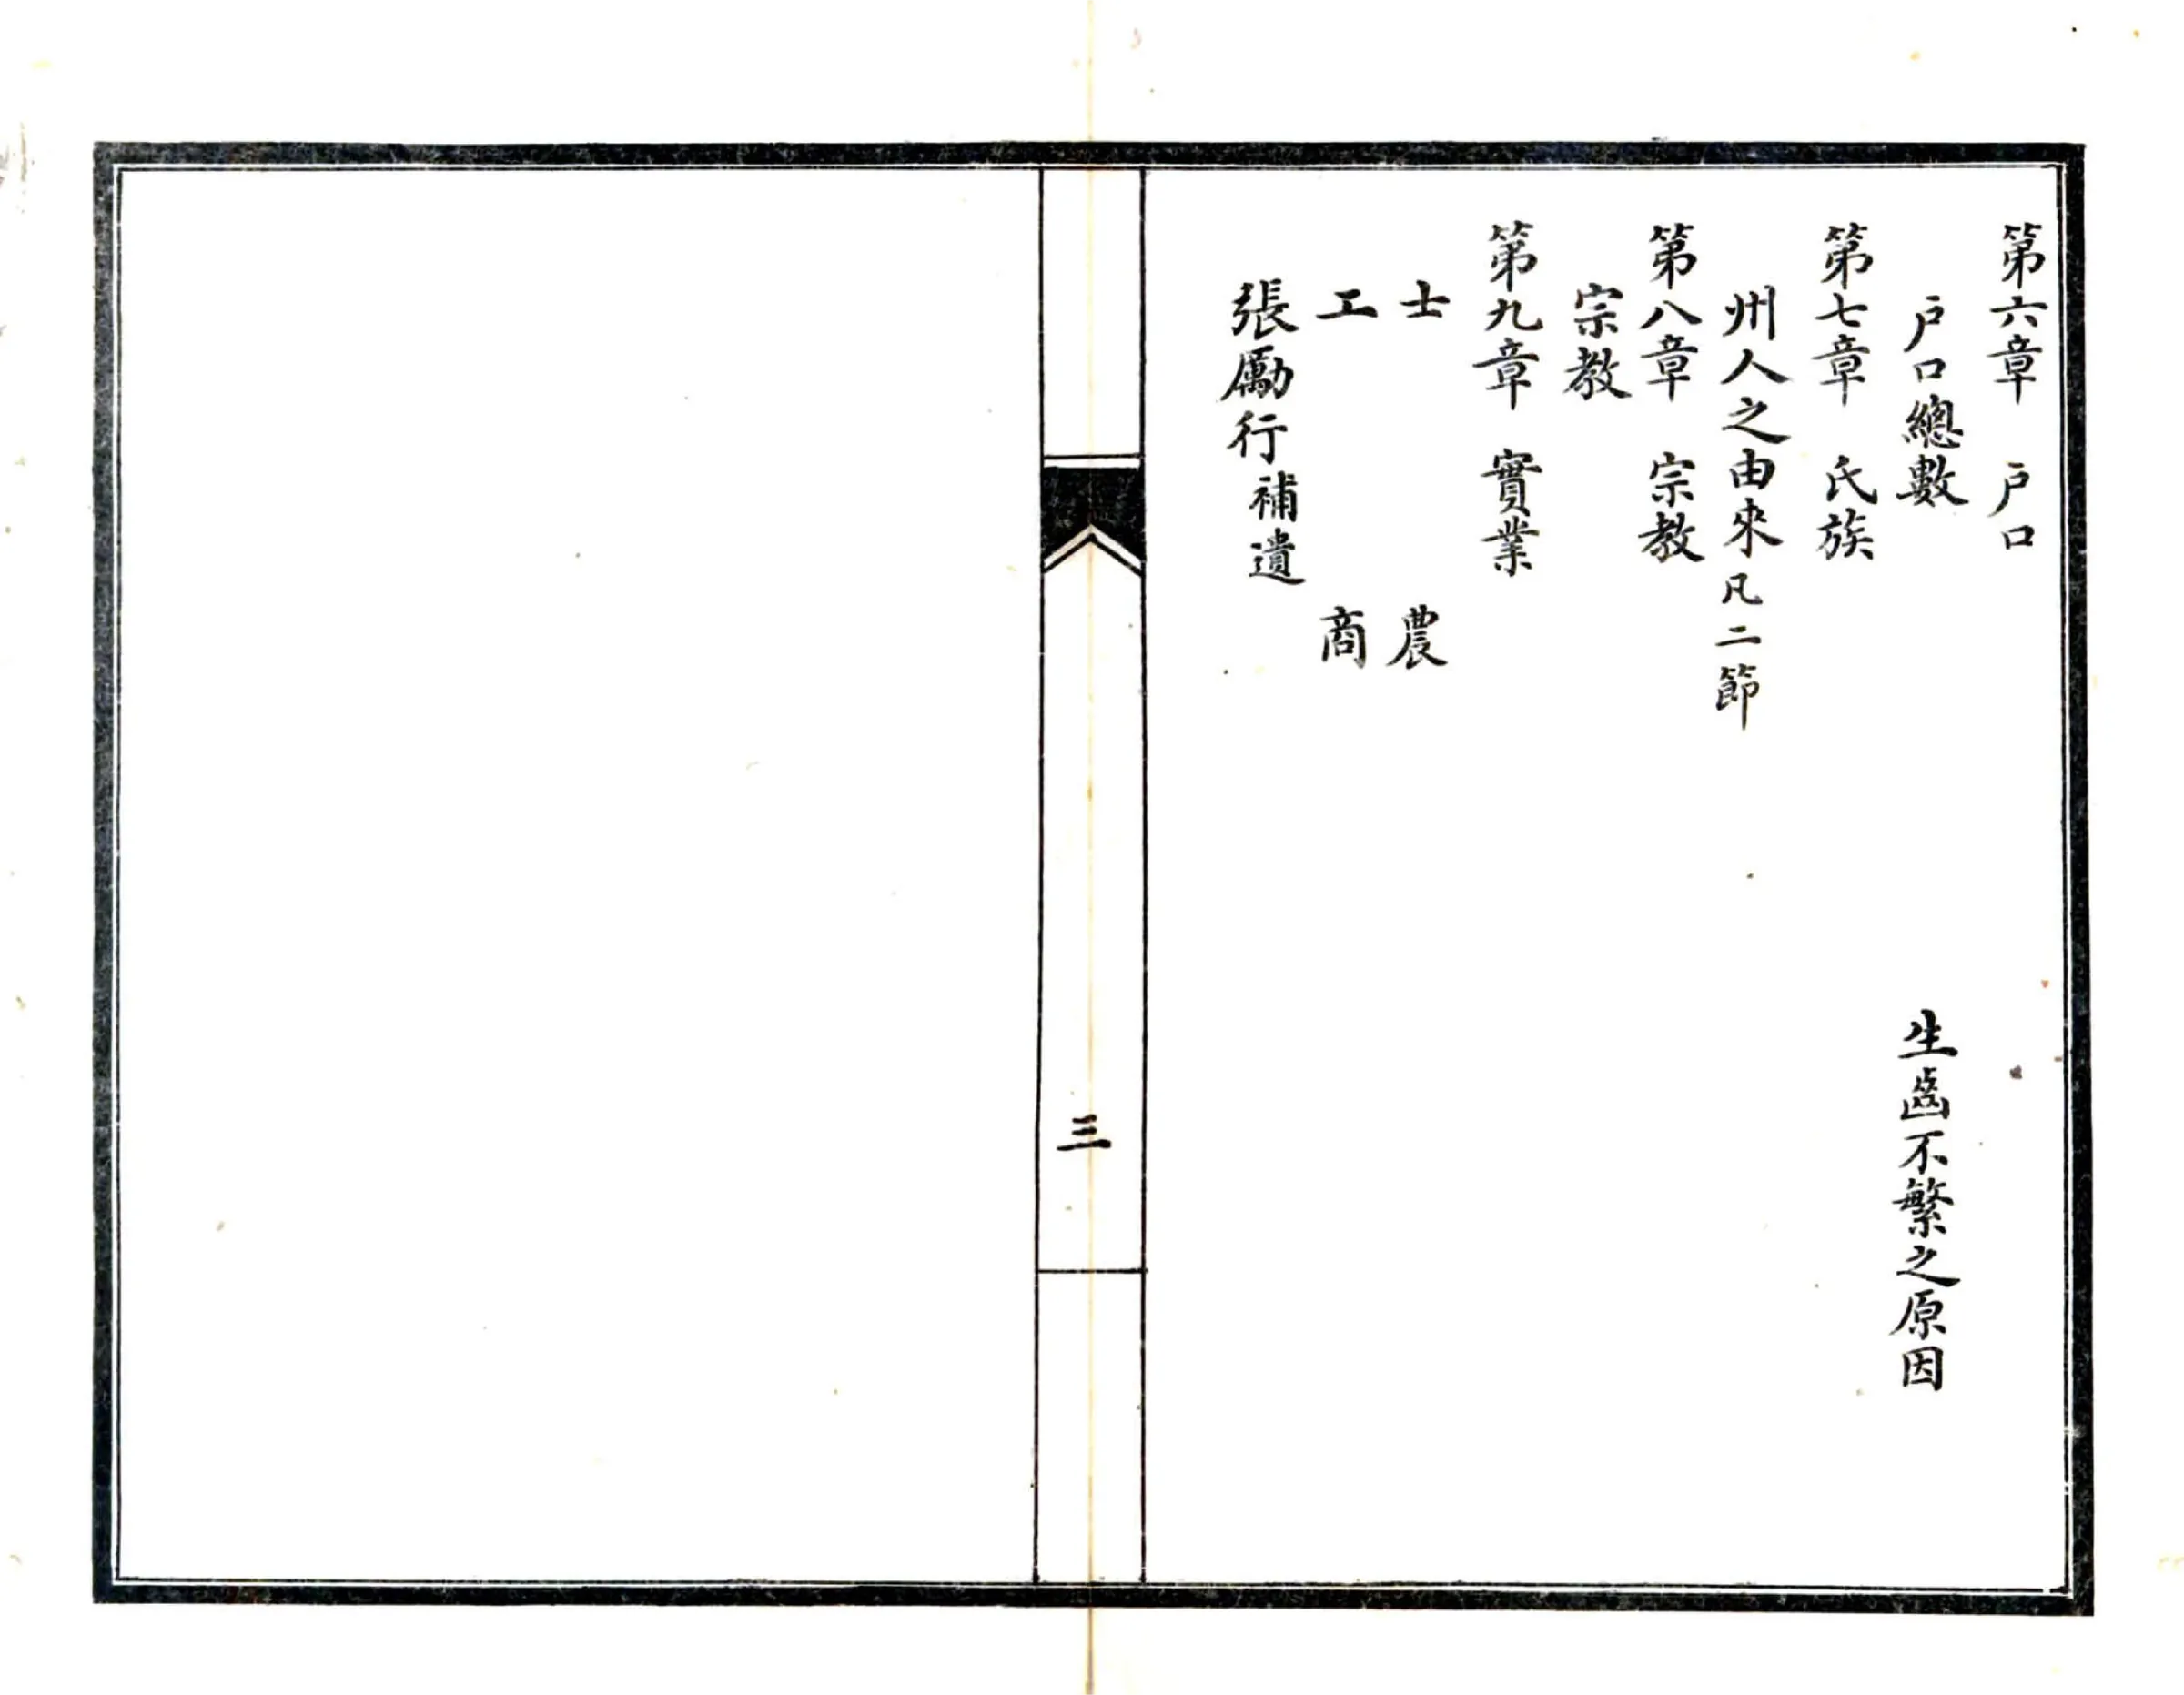 第六章　户口
户口總數　生齒不繁之原因
第七章　氏族
州人之由來凡二節
第八章　宗教
宗教
第九章　實業
士　農
工　商
張勵行補遺
三